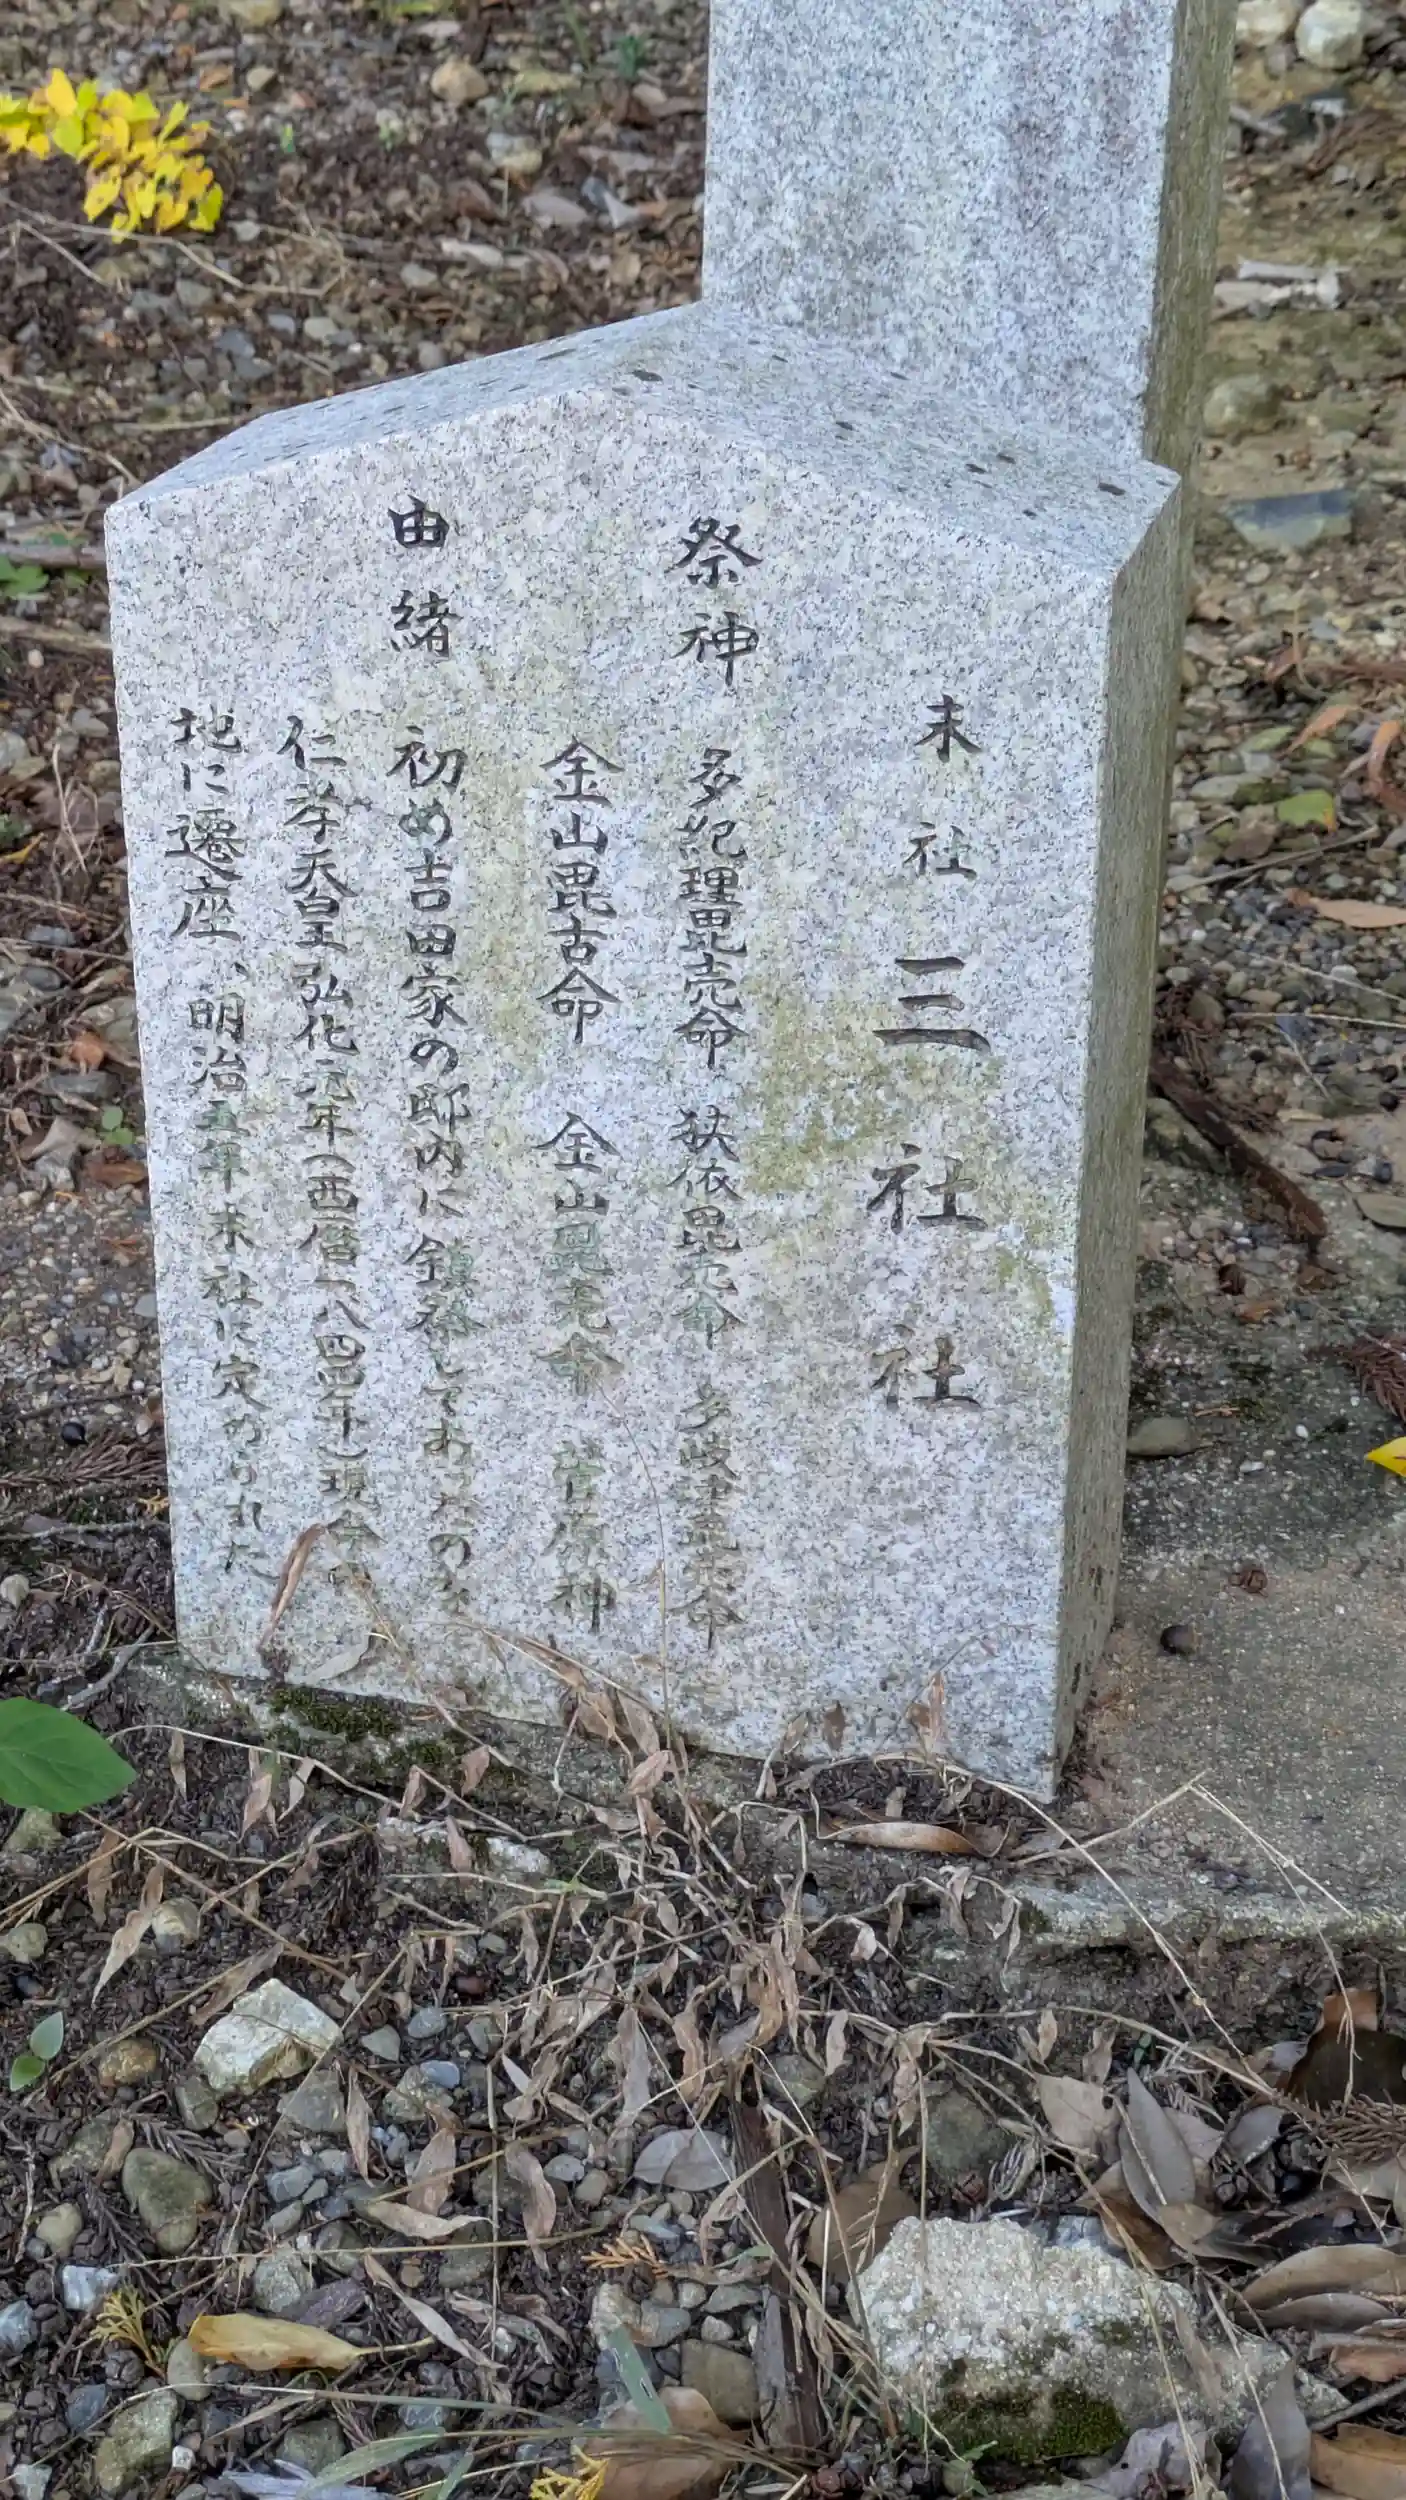 末社 三社社
祭神 多紀理毘売命 狭依毘売命 多岐津毘売命
金山毘古命 金山毘売命 菅原神
由緒 初め吉田家の邸内に鎮祭してあったのを
仁孝天皇弘化元年(西暦一八四四年)現今の
地に遷座、明治五年末社に定められた